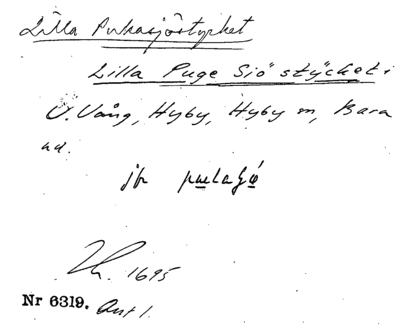 Lilla Pukasjöstycket
Lilla Puge Siö stÿcket i
V. Vång, Hyby, Hyby sn, Bara
hd.
jfr
1695
Nr 6319. Akt 1.